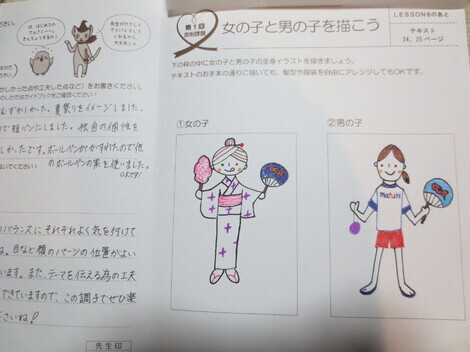 は、はじめての
てんさく…。
きんちょうするわ!
先生がやさしく
アドバイスして
くれるから、
大丈夫よ。
しかった点や工夫した点など）をお書きください。
むずかしかった。夏祭りをイメージしました。
で短パンにしました。独自の個性を
しかったです。ボールペンがかすれたので他
のボールペンの黒を使いました。
OKです!
のバランスにそれぞれよく気を付けて
ね。目など顔のパーツの位置がよい
います。また、テーマを伝える為の工夫
できていますので、この調子でぜひ楽
さいね!
先生印
第1回
添削課題
女の子と男の子を描こう
LESSON8のあと
テキスト
24、25ページ
下の枠の中に女の子と男の子の全身イラストを描きましょう。
テキストのお手本の通りに描いても、髪型や服装を自由にアレンジしてもOKです。
①女の子
②男の子